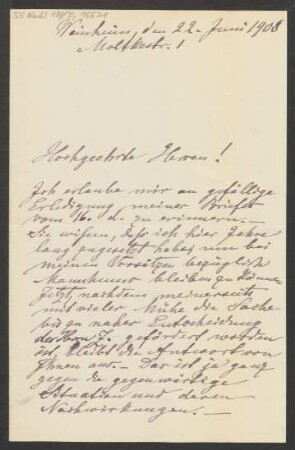 Weinheim, den 22. Juni 1908
Moltkestr. 1
Hochgeehrte Herren!
Ich erlaube mir an gefällige
Erledigung meiner Briefe
vom 16. d. zu erinnern. —
Sie wissen, daß ich hier Jahre
lang ausgesetzt habe, um bei
meinen Vorsätzen bezüglich
Mannheims bleiben zu können
Jetzt, nachdem meinerseits
mit vieler Mühe die Sache
bis zu naher Entscheidung
gefördert worden
ist, bleibt die Antwort von
Ihnen aus. — Das ist ja ganz
gegen die gegenwärtige
Situation und deren
Nachwirkungen. —